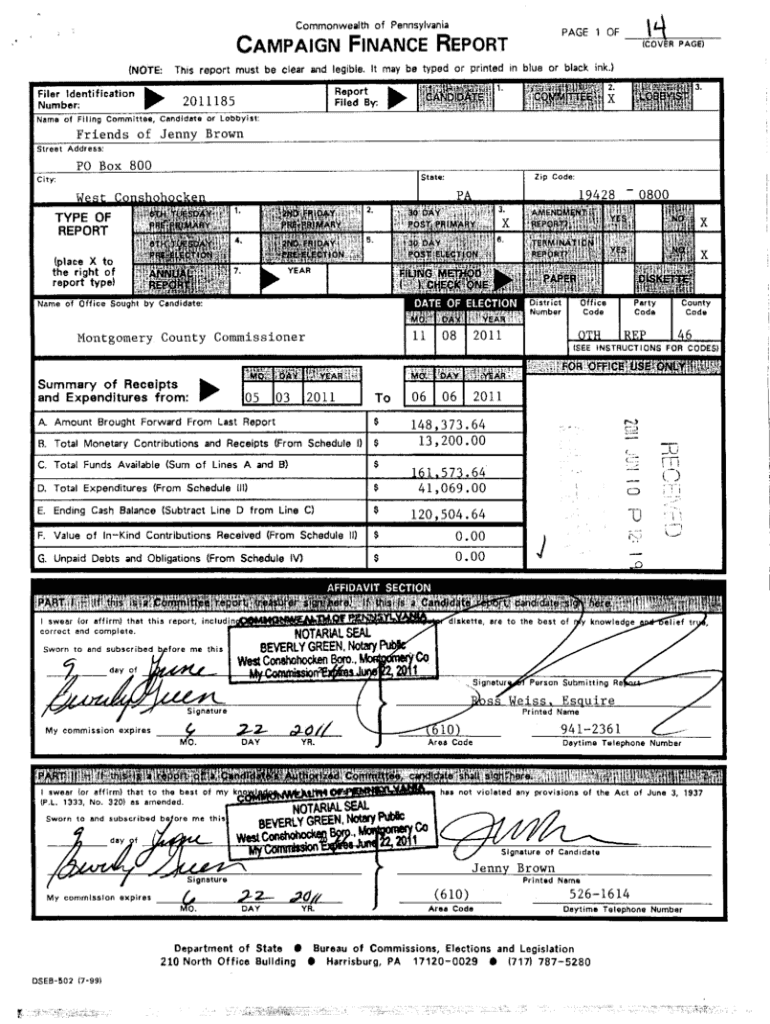 Commonwealth of Pennsylvania
CAMPAIGN FINANCE REPORT
PAGE 1 OF 14
(COVER PAGE)
(NOTE: This report must be clear and legible. It may be typed or printed in blue or black ink.)
Filer Identification Number: 2011185
Report Filed By: CANDIDATE 1. COMMITTEE 2. X LOBBYIST 3.
Name of Filing Committee, Candidate or Lobbyist:
Friends of Jenny Brown
Street Address:
PO Box 800
City: State: Zip Code:
West Conshohocken PA 19428 - 0800
TYPE OF REPORT
(place X to the right of report type)
6TH TUESDAY PRE-PRIMARY 1. 2ND FRIDAY PRE-PRIMARY 2. 30 DAY POST PRIMARY 3. X AMENDMENT REPORT? YES NO X
6TH TUESDAY PRE-ELECTION 4. 2ND FRIDAY PRE-ELECTION 5. 30 DAY POST ELECTION 6. TERMINATION REPORT? YES NO X
ANNUAL REPORT 7. YEAR FILING METHOD ( ) CHECK ONE PAPER DISKETTE
Name of Office Sought by Candidate: DATE OF ELECTION District Number Office Code Party Code County Code
MO. DAY YEAR
Montgomery County Commissioner 11 08 2011 OTH REP 46
(SEE INSTRUCTIONS FOR CODES)
FOR OFFICE USE ONLY
MO. DAY YEAR MO. DAY YEAR
Summary of Receipts and Expenditures from: 05 03 2011 To 06 06 2011
A. Amount Brought Forward From Last Report $ 148,373.64
B. Total Monetary Contributions and Receipts (From Schedule I) $ 13,200.00
C. Total Funds Available (Sum of Lines A and B) $ 161,573.64
D. Total Expenditures (From Schedule III) $ 41,069.00
E. Ending Cash Balance (Subtract Line D from Line C) $ 120,504.64
F. Value of In-Kind Contributions Received (From Schedule II) $ 0.00
G. Unpaid Debts and Obligations (From Schedule IV) $ 0.00
RECEIVED
2011 JUN 10 P 12: 19
AFFIDAVIT SECTION
PART I - If this is a Committee report, treasurer sign here. If this is a Candidate report, candidate sign here.
I swear (or affirm) that this report, including diskette, are to the best of my knowledge and belief true, correct and complete.
COMMONWEALTH OF PENNSYLVANIA
NOTARIAL SEAL
BEVERLY GREEN, Notary Public
West Conshohocken Boro., Montgomery Co
My Commission Expires June 22, 2011
Sworn to and subscribed before me this
9 day of June
Beverly Green
Signature
Signature of Person Submitting Report
Ross Weiss, Esquire
Printed Name
My commission expires 6 22 2011
MO. DAY YR.
(610) 941-2361
Area Code Daytime Telephone Number
PART II - If this is a report of a Candidate's Authorized Committee, candidate shall sign here.
I swear (or affirm) that to the best of my knowledge has not violated any provisions of the Act of June 3, 1937
(P.L. 1333, No. 320) as amended.
COMMONWEALTH OF PENNSYLVANIA
NOTARIAL SEAL
BEVERLY GREEN, Notary Public
West Conshohocken Boro., Montgomery Co
My Commission Expires June 22, 2011
Sworn to and subscribed before me this
9 day of June
Beverly Green
Signature
Signature of Candidate
Jenny Brown
Printed Name
My commission expires 6 22 2011
MO. DAY YR.
(610) 526-1614
Area Code Daytime Telephone Number
Department of State ● Bureau of Commissions, Elections and Legislation
210 North Office Building ● Harrisburg, PA 17120-0029 ● (717) 787-5280
DSEB-502 (7-99)